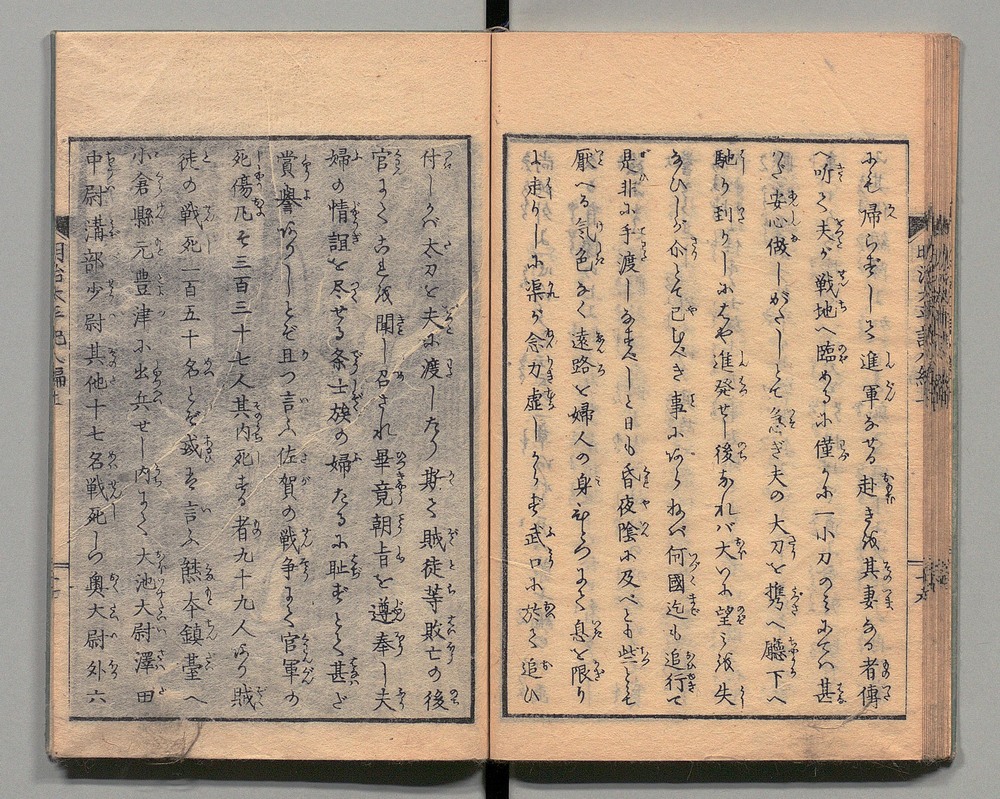 にも帰らずして進軍なせる赴きを其妻なる者傳
へ听て夫が戦地へ臨めるに僅かに一小刀のみにてハ甚
だ安心做しがたしとて急ぎ夫の大刀を携へ廳下へ
馳り到りしにはや進発せし後なれバ大いに望みを失
なひしが仝とて已むべき事にあらねバ何國迄も追行て
是非に手渡しなすべしと日も昏夜陰に及べども些とも
厭へる氣色なく遠路を婦人の身ひとつにて息を限り
に走りしに渠が念力虚しからず武口に於て追ひ
付しかバ太刀を夫に渡したり斯て賊徒等敗亡の後
官にてこれを聞し召され畢竟朝旨を遵奉し夫
婦の情誼を尽せる条士族の婦たるに耻ずとて甚ざ
賞譽ありしとぞ且つ言ふ佐賀の戦争にて官軍の
死傷凡そ三百三十七人其内死する者九十九人なり賊
徒の戦死一百五十名とぞ或は言ふ熊本鎮臺へ
小倉縣元豊津に出兵せし内にて大池大尉澤田
中尉溝部少尉其他十七名戦死しつ奥大尉外六
明治太平記八編上